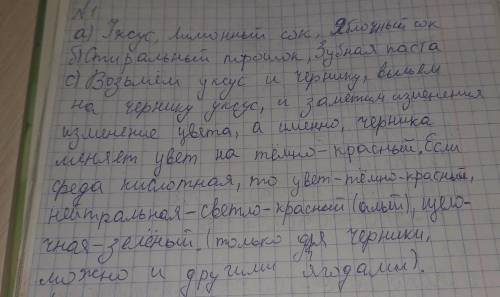 №1
а) Уксус, лимонный сок, яблочный сок
б) Стиральный порошок, зубная паста
с) Возьмём уксус и чернику, выльем
на чернику уксус, и заметим изменения
изменение цвета, а именно, черника
меняет цвет на тёмно-красный. Если
среда кислотная, то цвет-тёмно-красный,
нейтральная-светло-красный (алый), щело-
чная-зелёный. (только для черники,
можно и другими ягодами).